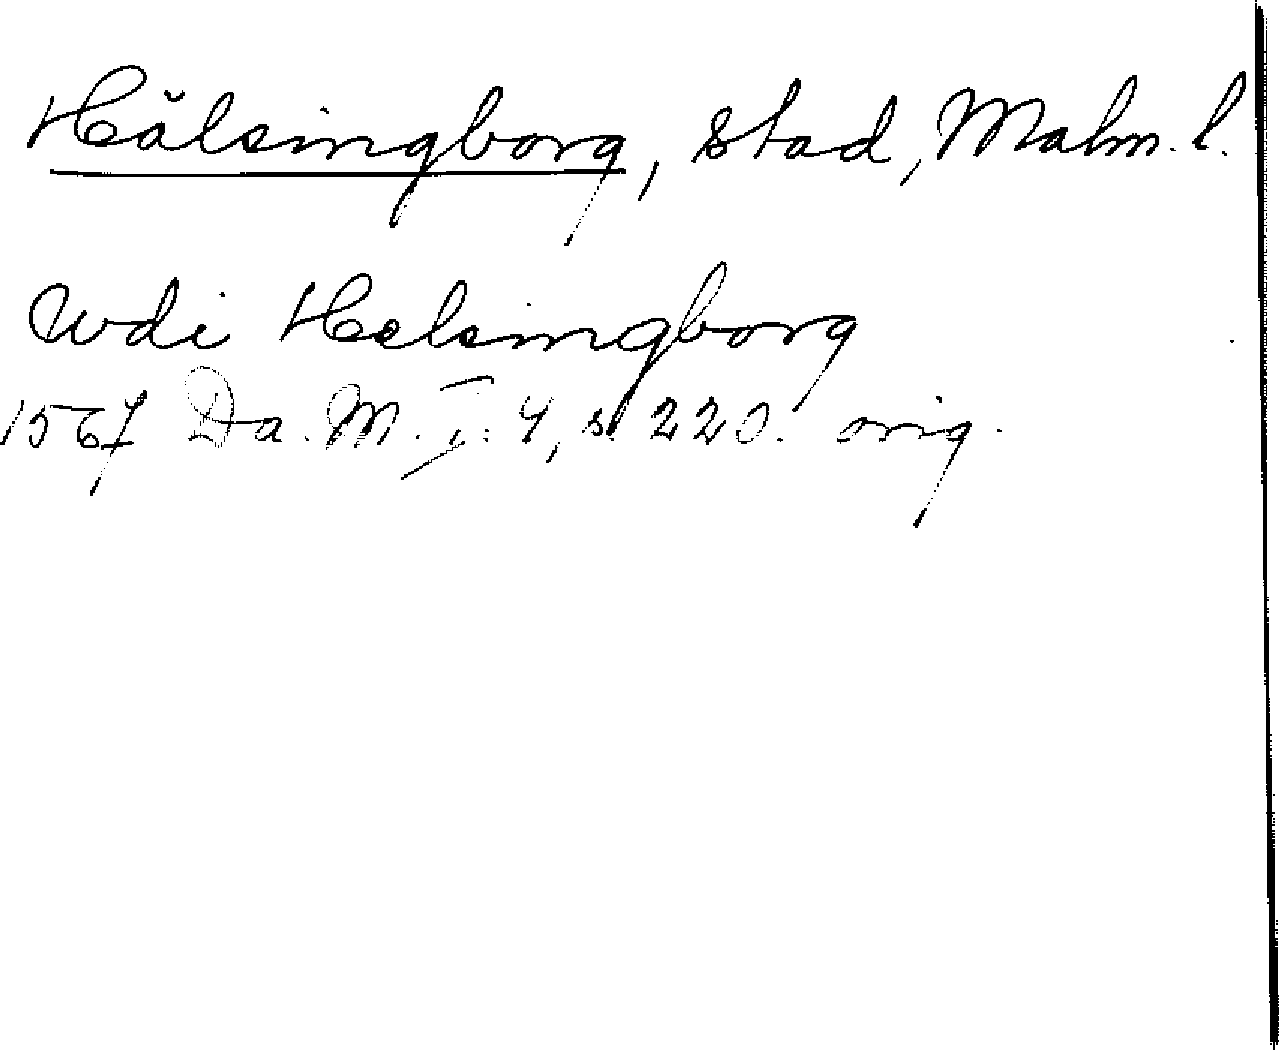 Hälsingborg, stad, Malm. l.
Wdi Helsingborg
1567 Da. M. I: 4, s 220. orig.